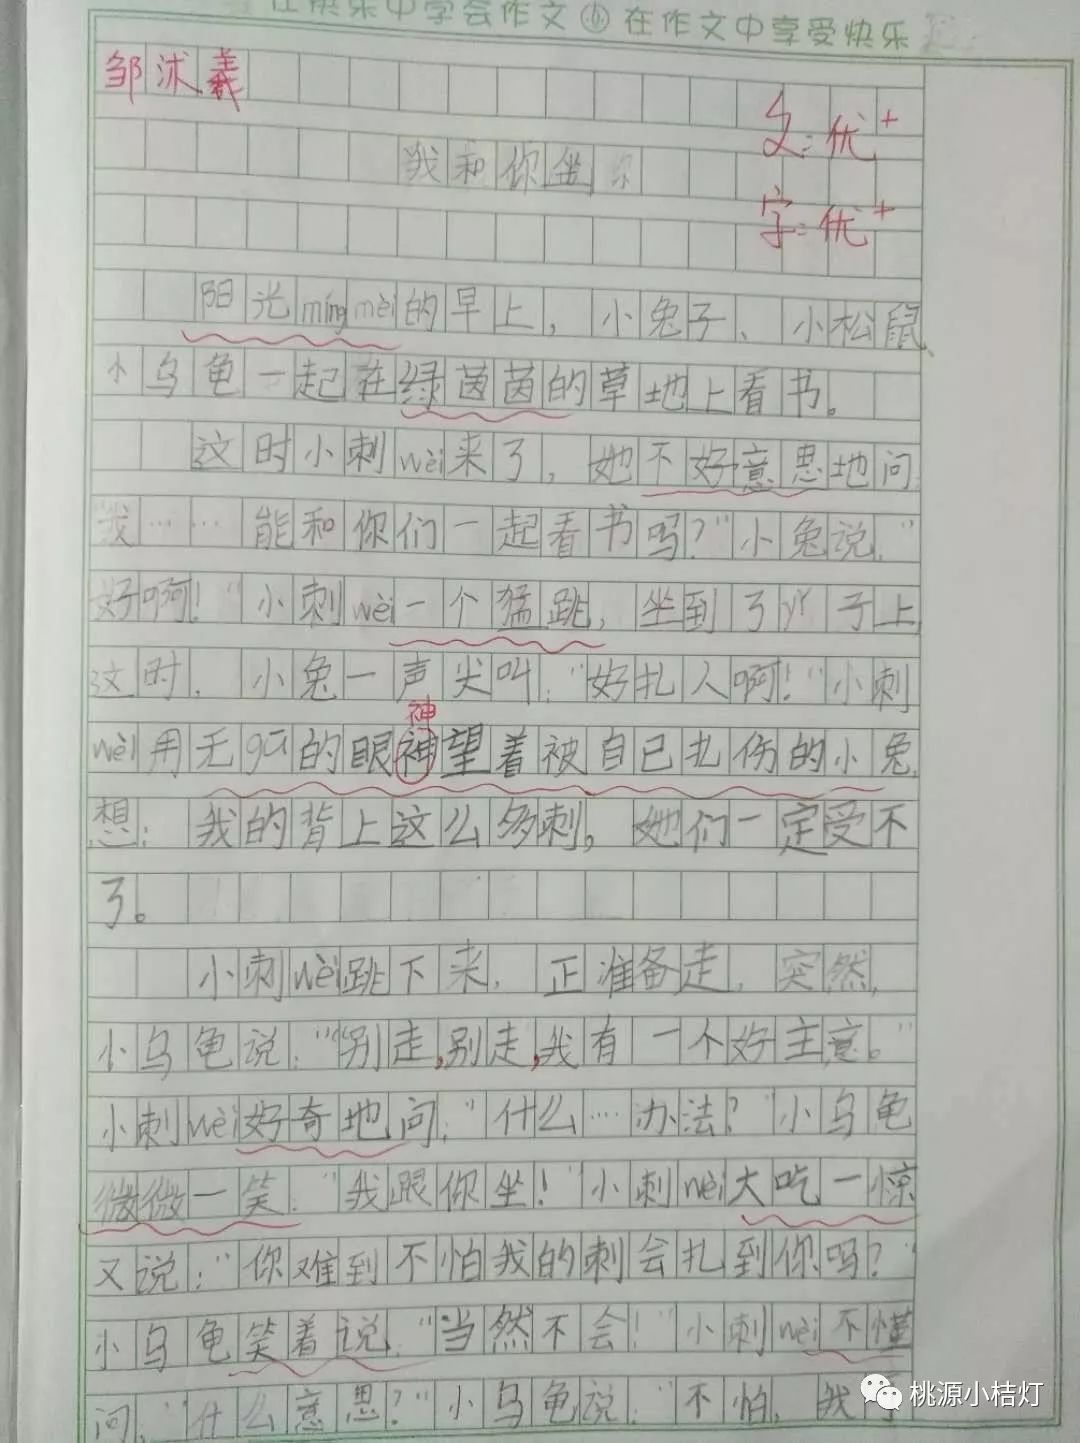 在快乐中学会作文 在作文中享受快乐
邹沭羲
文:优+
我和你坐
字:优+
阳光míngmèi的早上，小兔子、小松鼠、
小乌龟一起在绿茵茵的草地上看书。
这时小刺wèi来了，她不好意思地问:
我……能和你们一起看书吗?"小兔说:"
好啊!"小刺wèi一个猛跳，坐到了yǐ子上
这时，小兔一声尖叫:"好扎人啊!"小刺
神
wèi用无gū的眼神望着被自己扎伤的小兔
想:我的背上这么多刺，她们一定受不
了。
小刺wèi跳下来，正准备走，突然，
小乌龟说:"别走,别走,我有一个好主意。"
小刺wèi好奇地问:"什么…办法?"小乌龟
微微一笑:"我跟你坐!"小刺wèi大吃一惊
又说:"你难到不怕我的刺会扎到你吗?"
小乌龟笑着说:"当然不会!"小刺wèi不懂
问:"什么意思?"小乌龟说:"不怕，我
桃源小桔灯